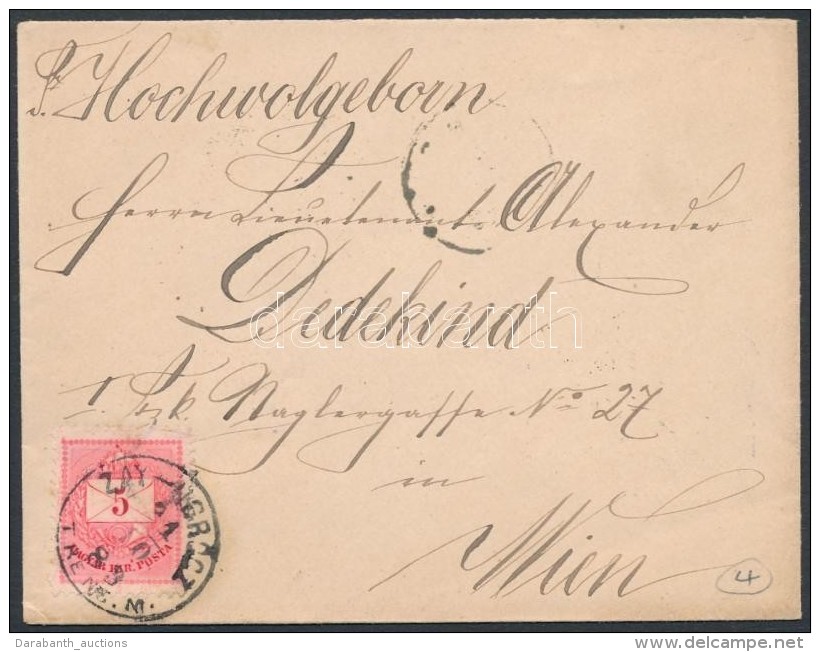 Sr. Hochwolgeborn
Herrn Lieutenant Alexander
Dedekind
I. Bzk. Naglergasse No 27
Wien
5
MAGYAR KIR. POSTA
ZAY-UGRÓCZ
TRENS. M.
4
darabanth
Darabanth_auctions
www.delcampe.net